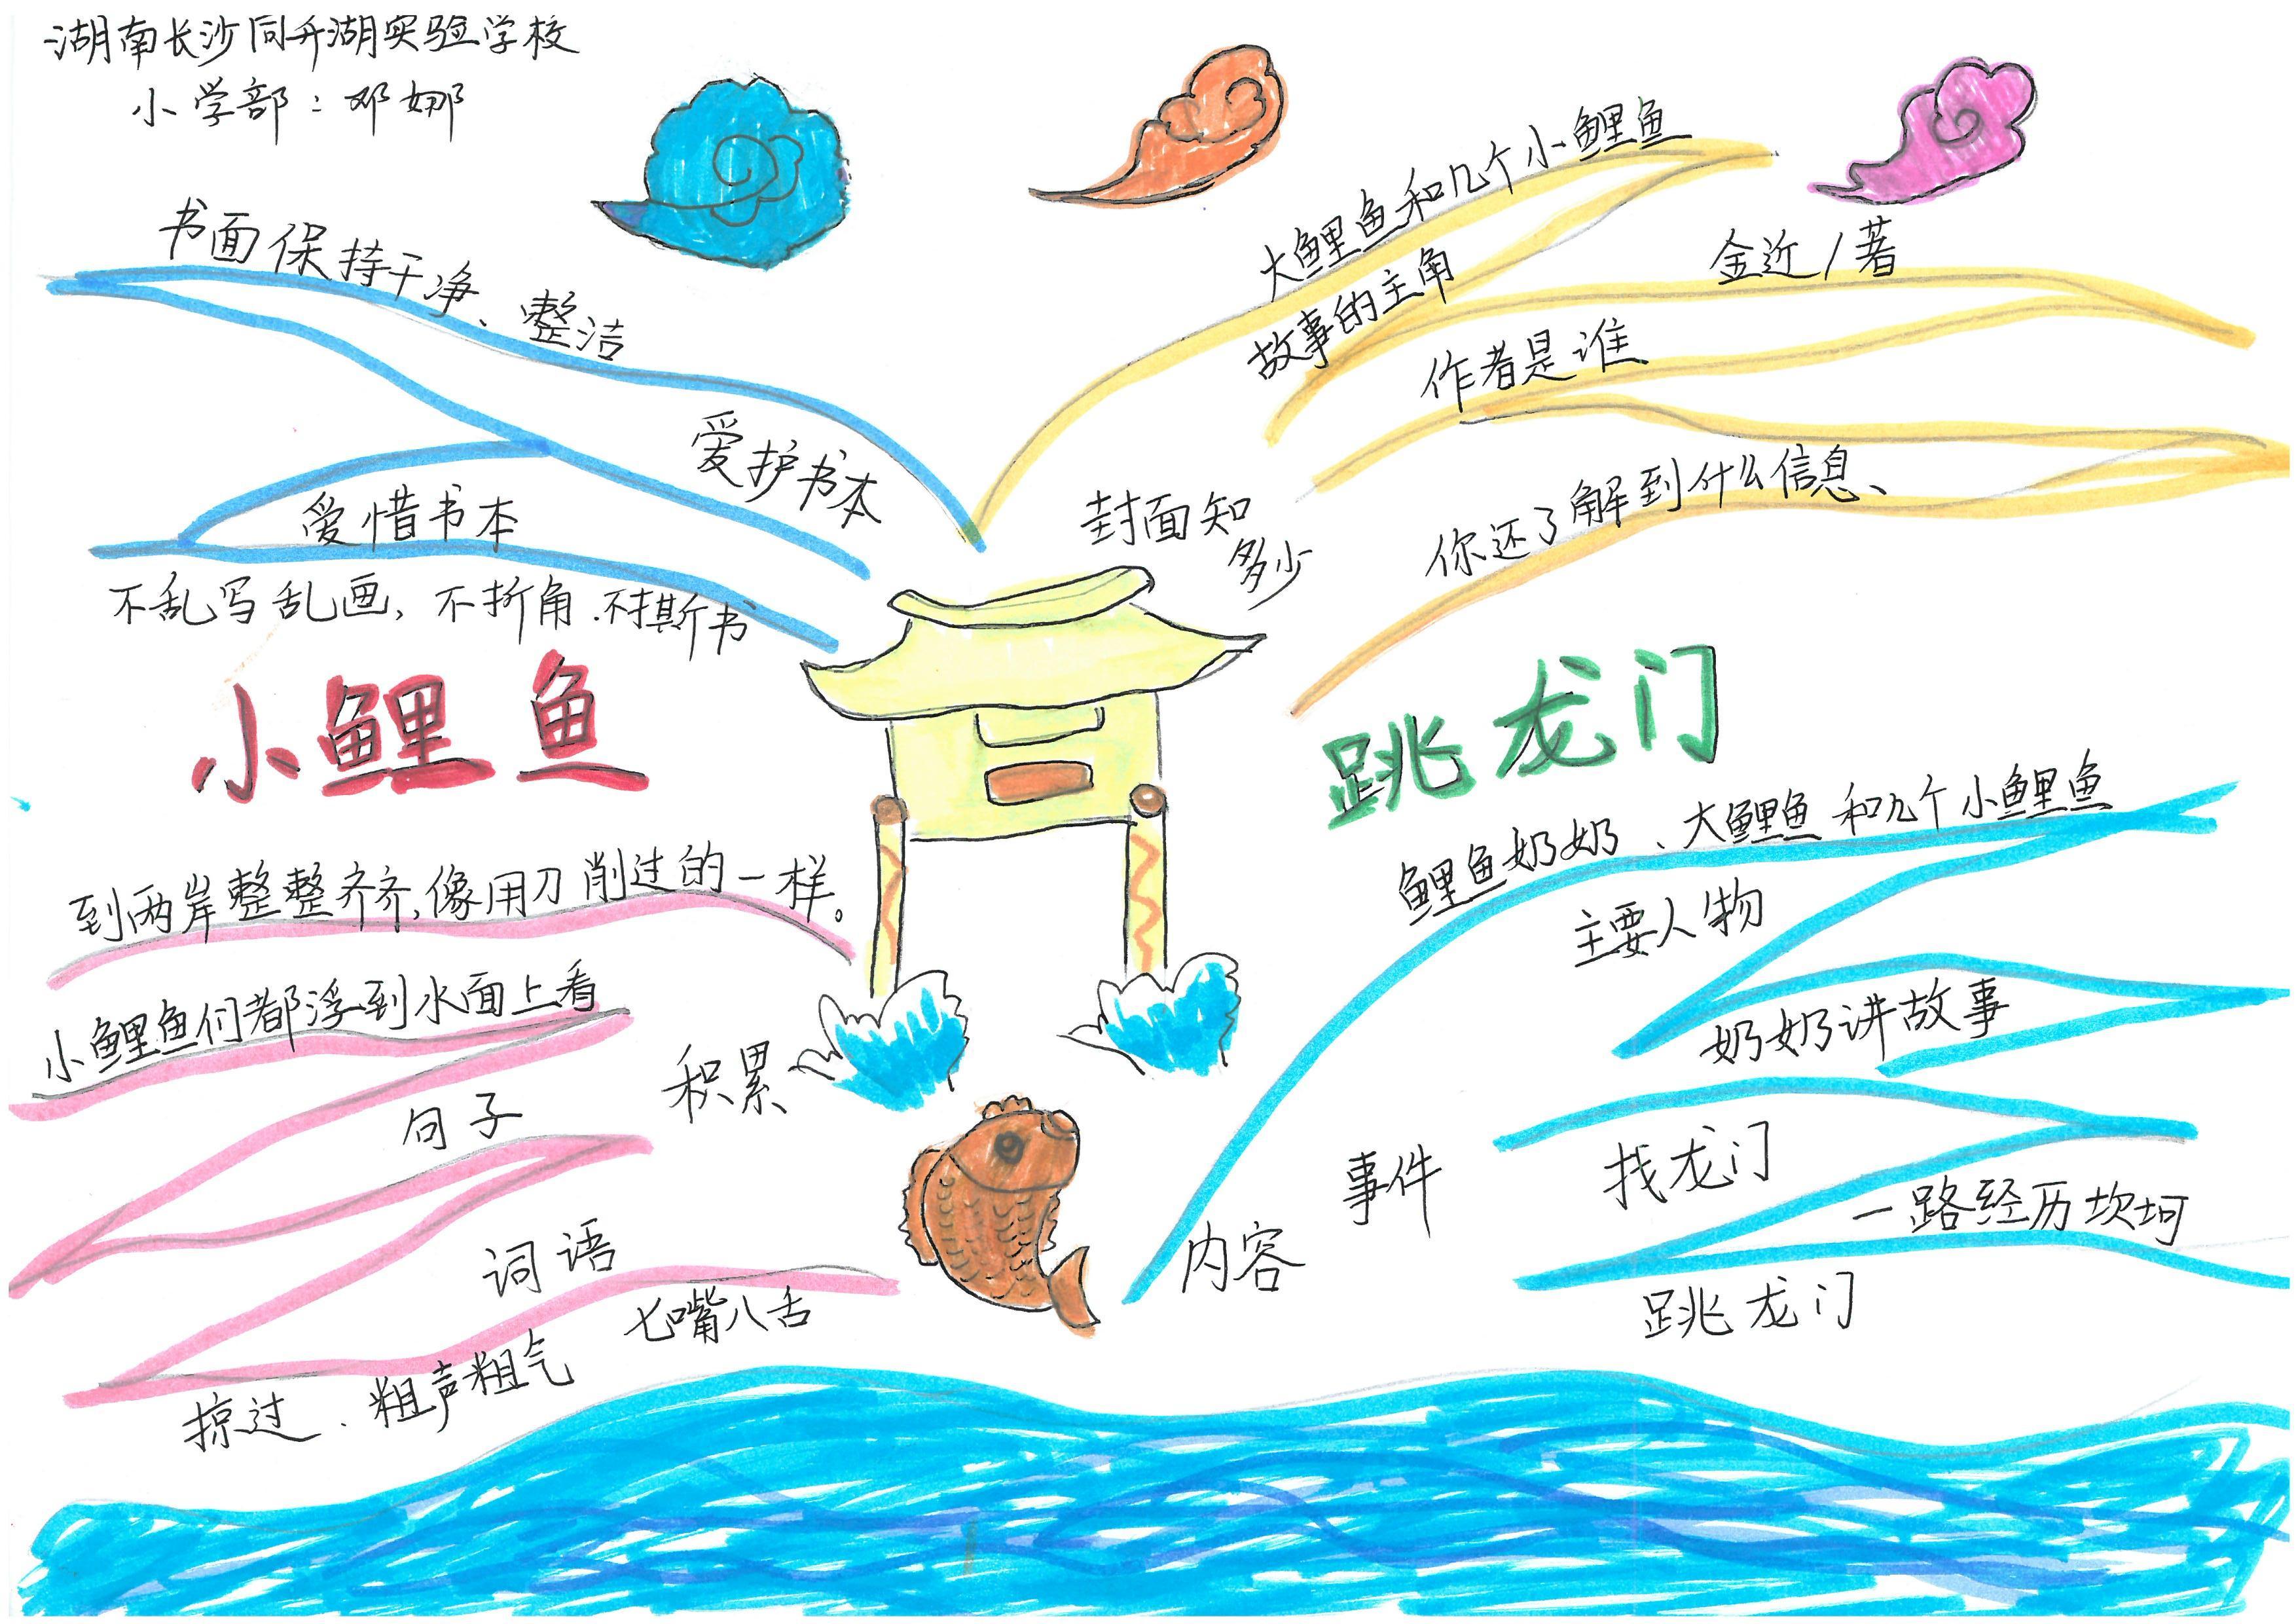 湖南长沙同升湖实验学校
小学部：邓娜
书面保持干净、整洁
爱护书本
爱惜书本
不乱写乱画，不折角.不撕书
大鲤鱼和几个小鲤鱼
故事的主角
金近/著
作者是谁
你还了解到什么信息、
封面知
多少
小鲤鱼
跳龙门
到两岸整整齐齐,像用刀削过的一样。
小鲤鱼们都浮到水面上看
句子
积累
词语
七嘴八舌
掠过、粗声粗气
鲤鱼奶奶、大鲤鱼和几个小鲤鱼
主要人物
奶奶讲故事
事件
找龙门
一路经历坎坷
内容
跳龙门